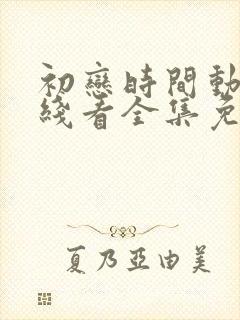 初戀時間動
綫看全集免
夏乃亞由美